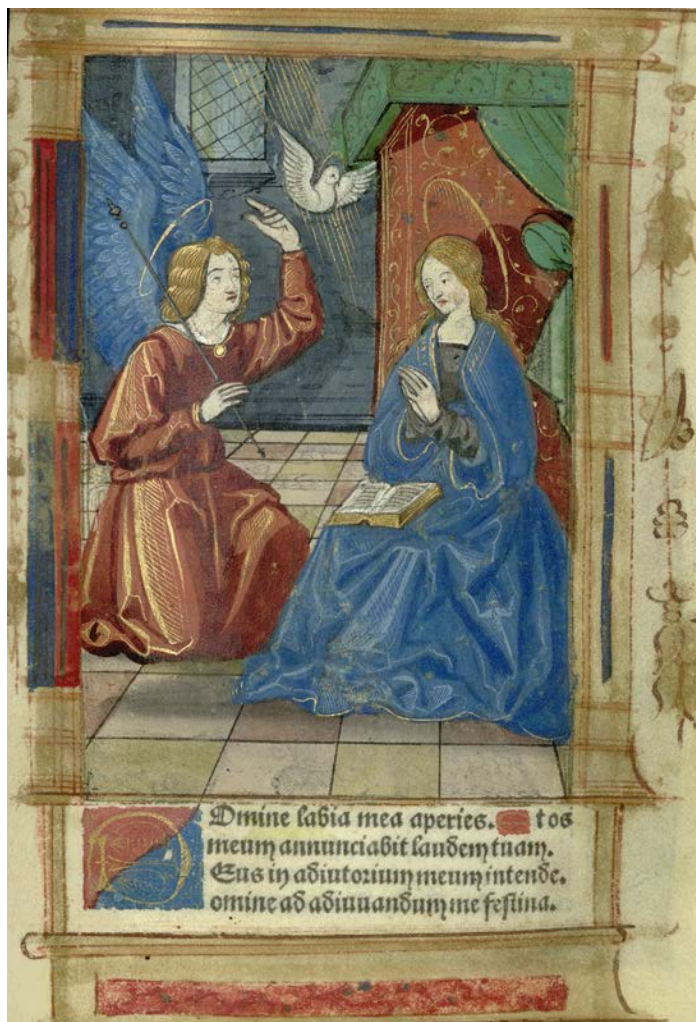 Domine labia mea aperies. Et os
meum annunciabit laudem tuam.
Eus in adiutorium meum intende.
omine ad adiuuandum me festina.